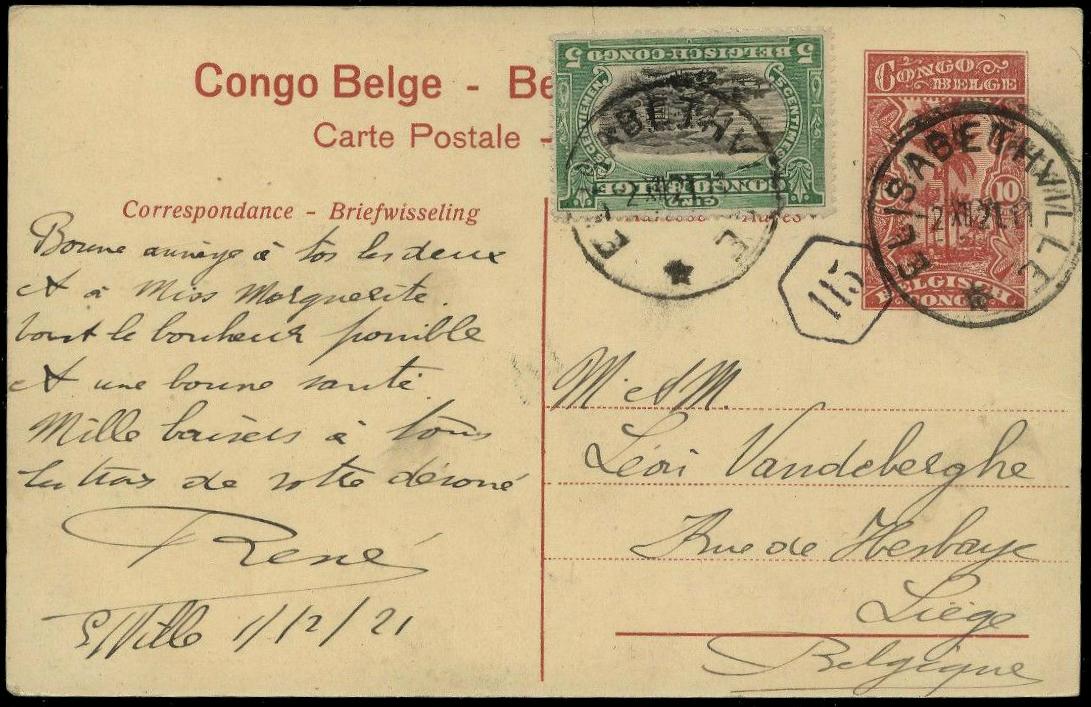 Congo Belge - Be
Carte Postale -
Correspondance - Briefwisseling
5 BELGISCH-CONGO 5
CENTIMES
CONGO BELGE
ELISABETHVILLE
CONGO BELGE
10
BELGISCH CONGO
ELISABETHVILLE
-2 XII 21
115
Bonne année à tos les deux
et à Miss Marguerite.
tout le bonheur possible
et une bonne santé.
Mille baisers à tous
les trois de votre dévoué
René
E/Ville 1/12/21
M. & M.
Léon Vandeberghe
Rue de Hesbaye
Liège
Belgique